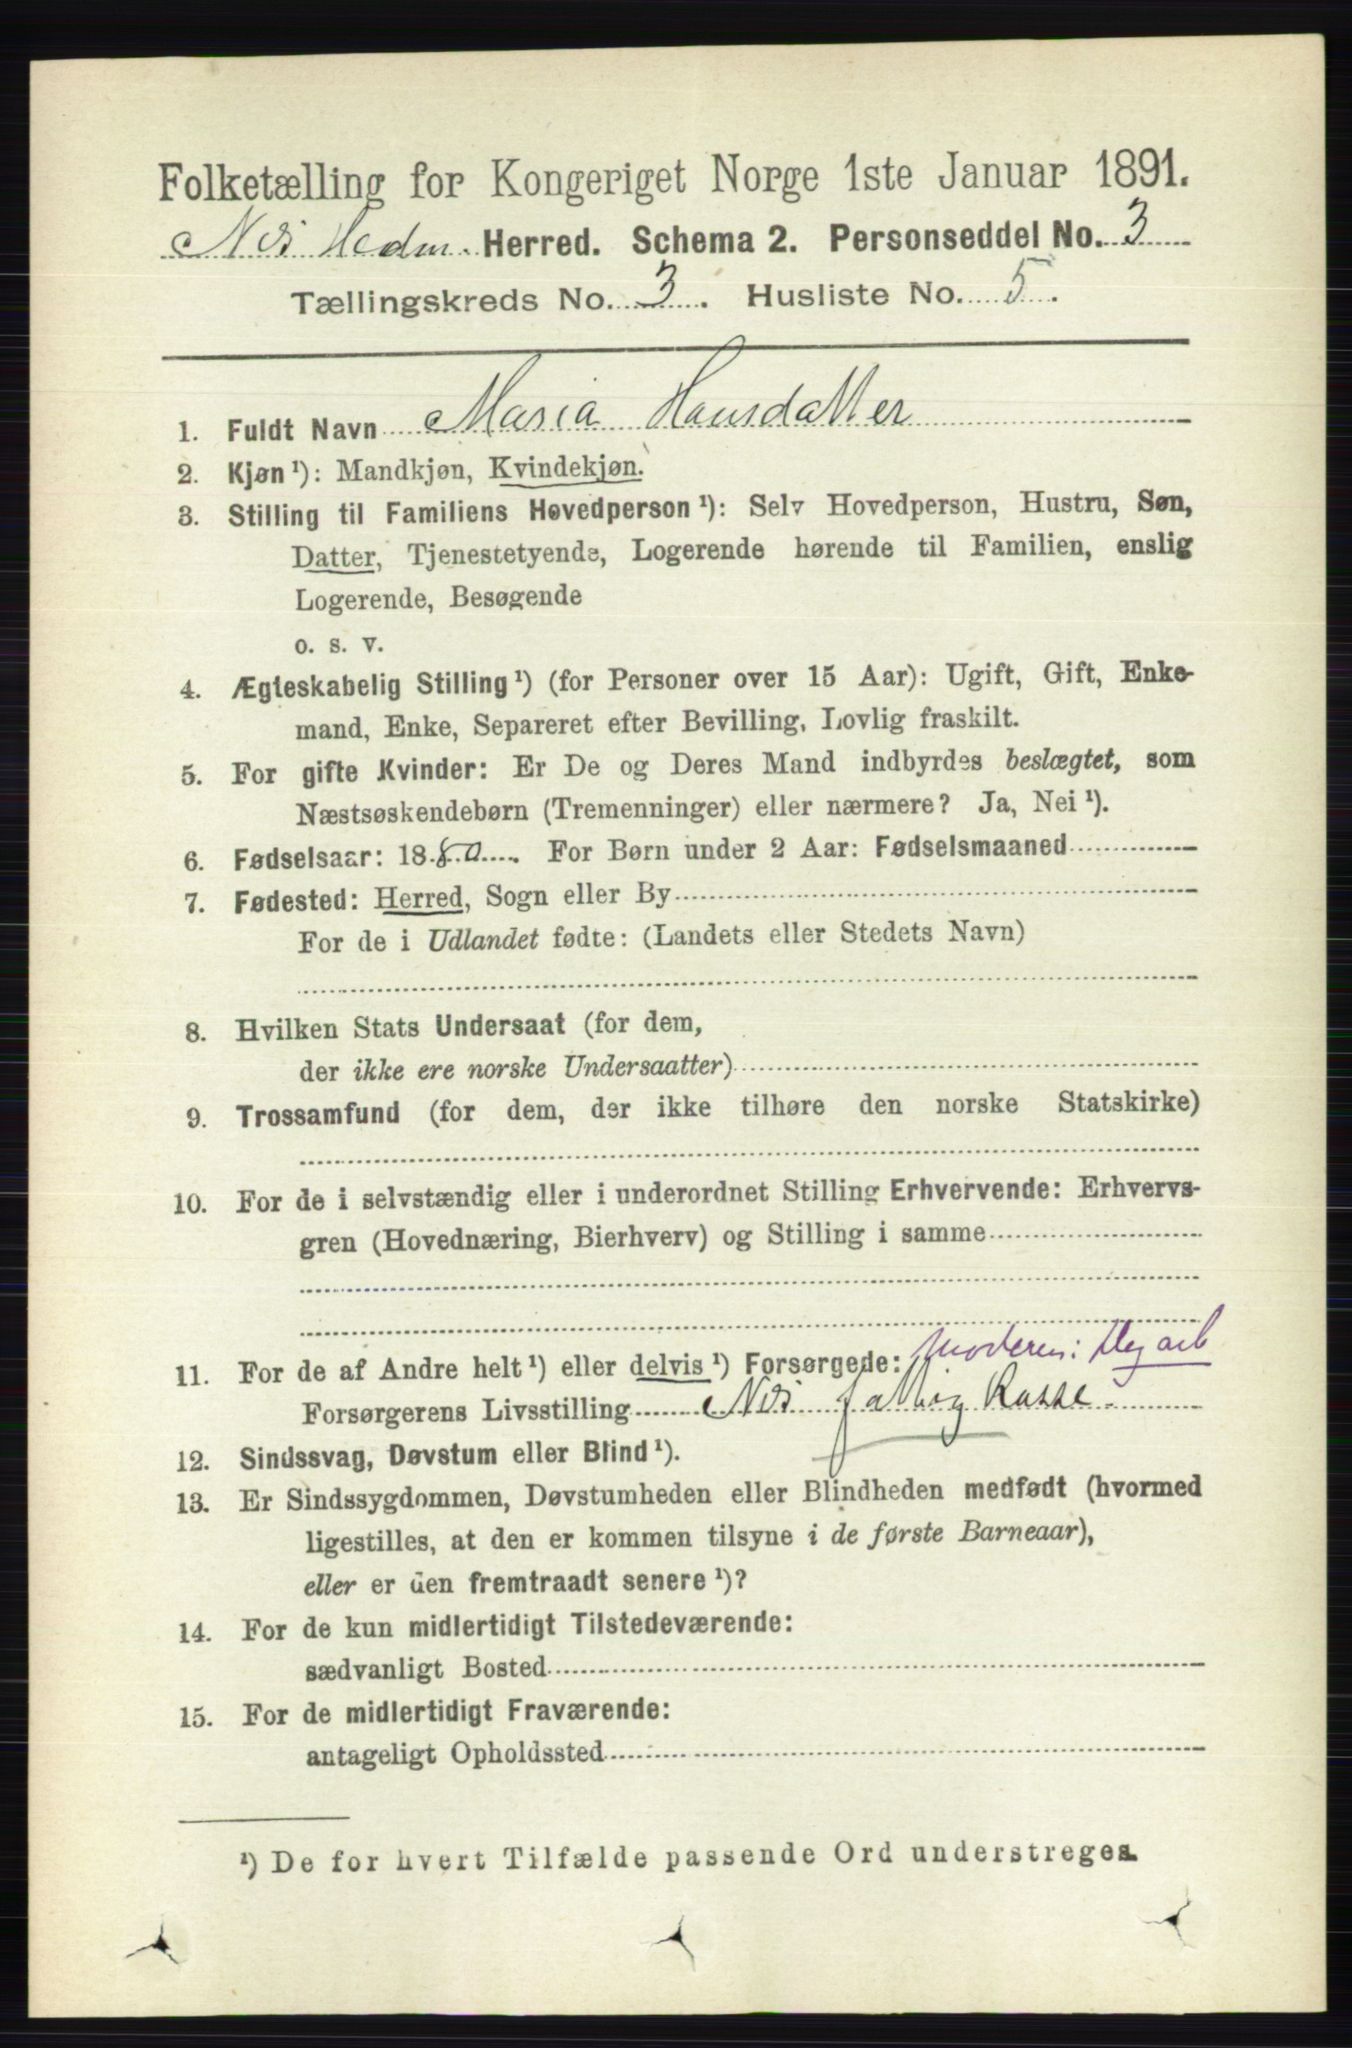 Folketælling for Kongeriget Norge 1ste Januar 1891.
Nes Hedm. Herred. Schema 2. Personseddel No. 3
Tællingskreds No. 3. Husliste No. 5.
1. Fuldt Navn Maria Hansdatter
2. Kjøn ¹): Mandkjøn, Kvindekjøn.
3. Stilling til Familiens Hovedperson ¹): Selv Hovedperson, Hustru, Søn,
Datter, Tjenestetyende, Logerende hørende til Familien, enslig
Logerende, Besøgende
o. s. v.
4. Ægteskabelig Stilling ¹) (for Personer over 15 Aar): Ugift, Gift, Enke-
mand, Enke, Separeret efter Bevilling, Lovlig fraskilt.
5. For gifte Kvinder: Er De og Deres Mand indbyrdes beslægtet, som
Næstsøskendebørn (Tremenninger) eller nærmere? Ja, Nei ¹).
6. Fødselsaar: 1880. For Børn under 2 Aar: Fødselsmaaned
7. Fødested: Herred, Sogn eller By
For de i Udlandet fødte: (Landets eller Stedets Navn)
8. Hvilken Stats Undersaat (for dem,
der ikke ere norske Undersaatter)
9. Trossamfund (for dem, der ikke tilhøre den norske Statskirke)
10. For de i selvstændig eller i underordnet Stilling Erhvervende: Erhvervs-
gren (Hovednæring, Bierhverv) og Stilling i samme
Moderen: Dagarb
11. For de af Andre helt ¹) eller delvis ¹) Forsørgede:
Forsørgerens Livsstilling Nes fattig Kasse.
12. Sindssvag, Døvstum eller Blind ¹).
13. Er Sindssygdommen, Døvstumheden eller Blindheden medfødt (hvormed
ligestilles, at den er kommen tilsyne i de første Barneaar),
eller er den fremtraadt senere ¹)?
14. For de kun midlertidigt Tilstedeværende:
sædvanligt Bosted
15. For de midlertidigt Fraværende:
antageligt Opholdssted
¹) De for hvert Tilfælde passende Ord understreges.